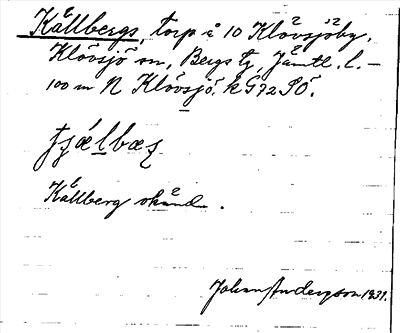 Källbergs, torp å 10 Klövsjöby,
Klövsjö sn, Bergs tg, Jämtl. l. –
100 m N Klövsjö. kG72SÖ.
Källberg okänd.
Johan Anderzson 1931.